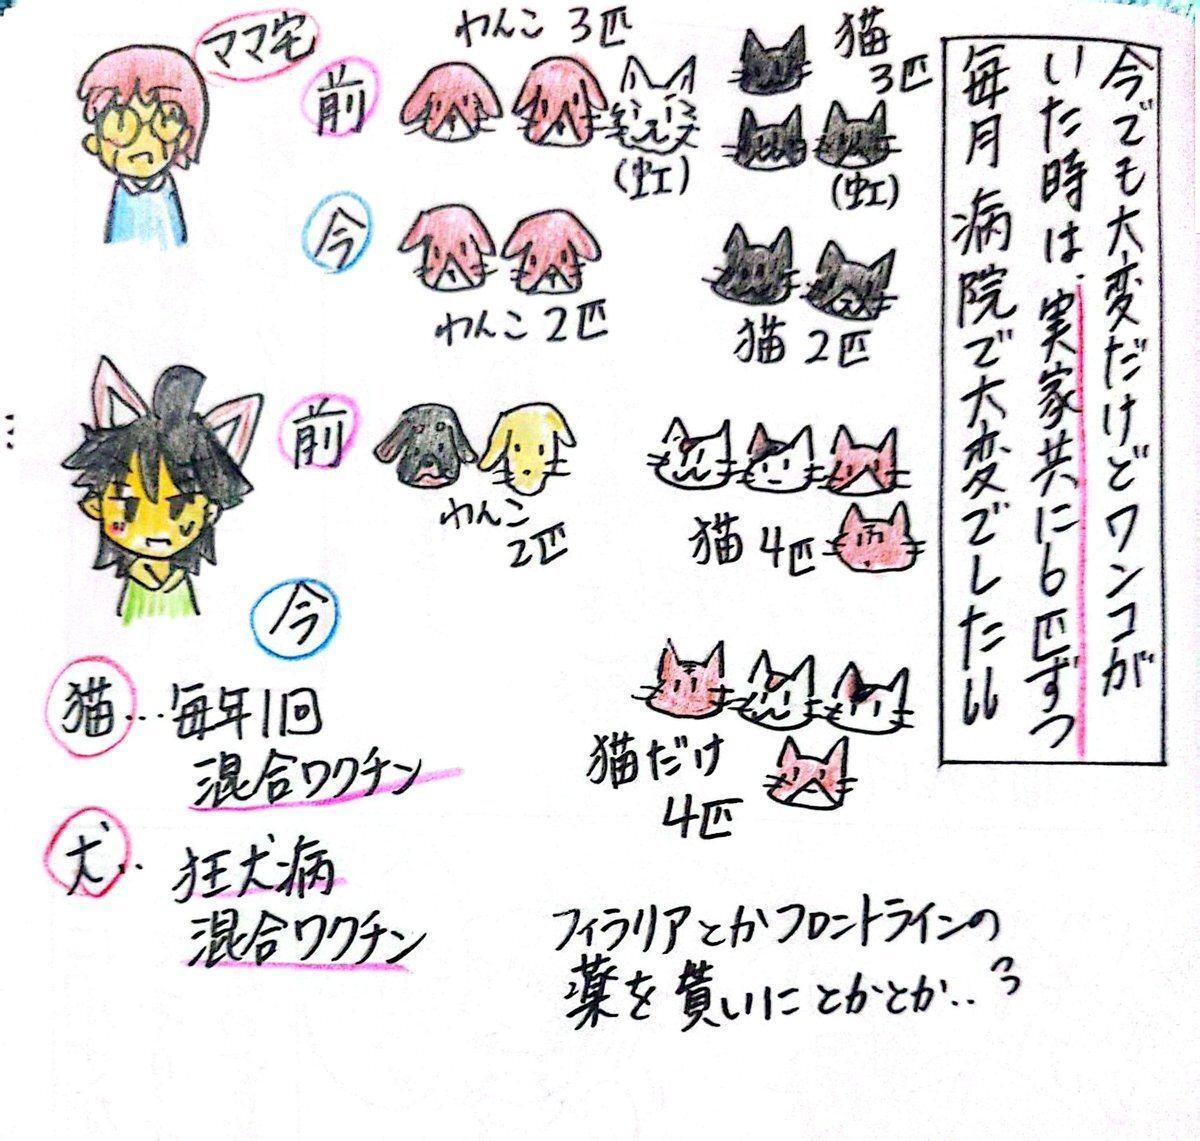 今でも大変だけどワンコが
いた時は、実家共に6匹ずつ
毎月病院で大変でした
ママ宅
前
わんこ 3匹
(虹)
猫
3匹
(虹)
今
わんこ 2匹
猫 2匹
前
わんこ
2匹
猫 4匹
今
猫だけ
4匹
猫…毎年1回
混合ワクチン
犬… 狂犬病
混合ワクチン
フィラリアとかフロントラインの
薬を貰いにとかとか‥